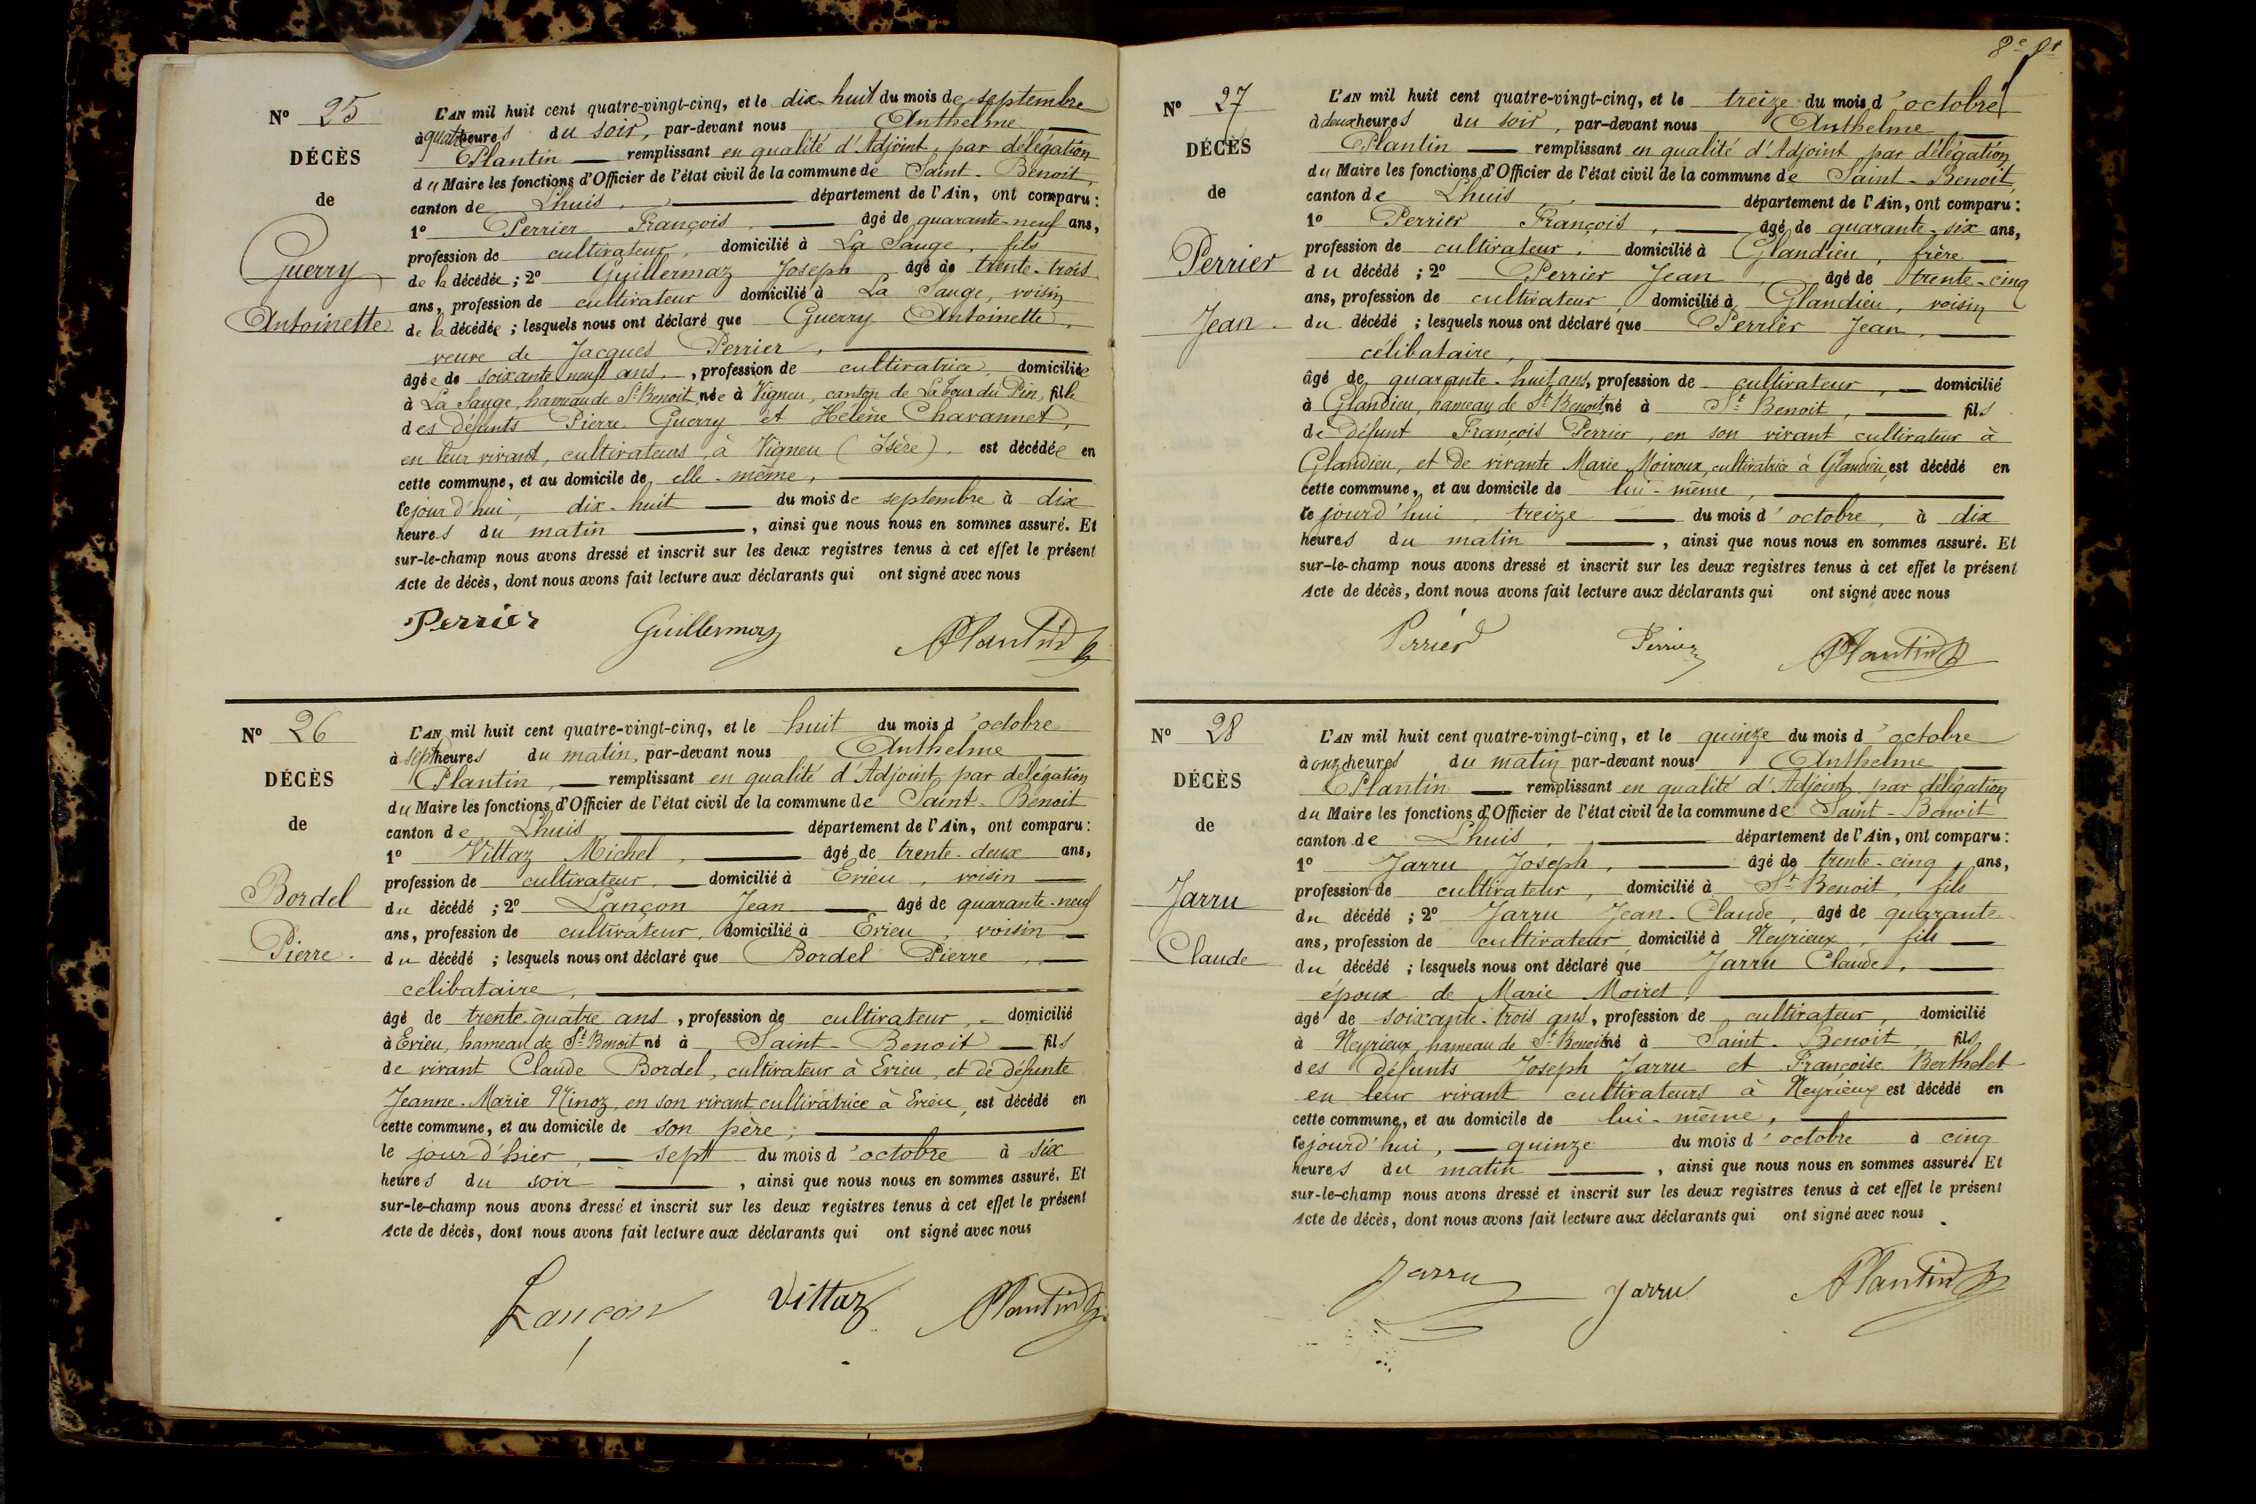 Nº 25
DÉCÈS
de
Guerry
Antoinette
L'AN mil huit cent quatre-vingt-cinq, et le dix-huit du mois de septembre
à quatre heures du soir, par-devant nous Anthelme
Plantin remplissant en qualité d'Adjoint, par délégation
du Maire les fonctions d'Officier de l'état civil de la commune de Saint-Benoit,
canton de Lhuis, département de l'Ain, ont comparu :
1º Perrier François, âgé de quarante-neuf ans,
profession de cultivateur, domicilié à La Sauge, fils
de la décédée ; 2º Guillermaz Joseph âgé de trente-trois
ans, profession de cultivateur domicilié à La Sauge, voisin
de la décédée ; lesquels nous ont déclaré que Guerry Antoinette,
veuve de Jacques Perrier,
âgée de soixante neuf ans, profession de cultivatrice, domiciliée
à La Sauge, hameau de St Benoit, née à Vigneu, canton de La Tour du Pin, fille
des défunts Pierre Guerry et Hélène Chavannet,
en leur vivant, cultivateurs, à Vigneu (Isère), est décédée en
cette commune, et au domicile de elle-même,
ce jourd'hui, dix-huit du mois de septembre à dix
heures du matin, ainsi que nous nous en sommes assuré. Et
sur-le-champ nous avons dressé et inscrit sur les deux registres tenus à cet effet le présent
Acte de décès, dont nous avons fait lecture aux déclarants qui ont signé avec nous
Perrier Guillermaz APlantin
Nº 26
DÉCÈS
de
Bordel
Pierre.
L'AN mil huit cent quatre-vingt-cinq, et le huit du mois d'octobre
à sept heures du matin, par-devant nous Anthelme
Plantin, remplissant en qualité d'Adjoint, par délégation
du Maire les fonctions d'Officier de l'état civil de la commune de Saint-Benoit
canton de Lhuis département de l'Ain, ont comparu :
1º Vittaz Michel, âgé de trente-deux ans,
profession de cultivateur, domicilié à Erieu, voisin
du décédé ; 2º Lançon Jean âgé de quarante-neuf
ans, profession de cultivateur, domicilié à Erieu, voisin
du décédé ; lesquels nous ont déclaré que Bordel Pierre,
célibataire,
âgé de trente-quatre ans, profession de cultivateur, domicilié
à Erieu, hameau de St Benoit né à Saint-Benoit fils
de vivant Claude Bordel, cultivateur à Erieu, et de défunte
Jeanne-Marie Ninoz, en son vivant cultivatrice à Erieu, est décédé en
cette commune, et au domicile de son père,
le jour d'hier, sept du mois d'octobre à six
heures du soir, ainsi que nous nous en sommes assuré. Et
sur-le-champ nous avons dressé et inscrit sur les deux registres tenus à cet effet le présent
Acte de décès, dont nous avons fait lecture aux déclarants qui ont signé avec nous
Lançon Vittaz APlantin
Nº 27
DÉCÈS
de
Perrier
Jean.
L'AN mil huit cent quatre-vingt-cinq, et le treize du mois d'octobre
à deux heures du soir, par-devant nous Anthelme
Plantin remplissant en qualité d'Adjoint par délégation
du Maire les fonctions d'Officier de l'état civil de la commune de Saint-Benoit,
canton de Lhuis, département de l'Ain, ont comparu :
1º Perrier François, âgé de quarante-six ans,
profession de cultivateur, domicilié à Glandieu, frère
du décédé ; 2º Perrier Jean, âgé de trente-cinq
ans, profession de cultivateur, domicilié à Glandieu, voisin
du décédé ; lesquels nous ont déclaré que Perrier Jean,
célibataire,
âgé de quarante-huit ans, profession de cultivateur, domicilié
à Glandieu, hameau de St Benoit né à St Benoit, fils
de défunt François Perrier, en son vivant cultivateur à
Glandieu, et de vivante Marie Moiroux, cultivatrice à Glandieu, est décédé en
cette commune, et au domicile de lui-même,
ce jourd'hui treize du mois d'octobre, à dix
heures du matin, ainsi que nous nous en sommes assuré. Et
sur-le-champ nous avons dressé et inscrit sur les deux registres tenus à cet effet le présent
Acte de décès, dont nous avons fait lecture aux déclarants qui ont signé avec nous
Perrier Perrier APlantin
Nº 28
DÉCÈS
de
Jarru
Claude
L'AN mil huit cent quatre-vingt-cinq, et le quinze du mois d'octobre
à onze heures du matin par-devant nous Anthelme
Plantin remplissant en qualité d'Adjoint, par délégation
du Maire les fonctions d'Officier de l'état civil de la commune de Saint-Benoit
canton de Lhuis, département de l'Ain, ont comparu :
1º Jarru Joseph, âgé de trente-cinq ans,
profession de cultivateur, domicilié à St Benoit, fils
du décédé ; 2º Jarru Jean-Claude, âgé de quarante
ans, profession de cultivateur domicilié à Neyrieux, fils
du décédé ; lesquels nous ont déclaré que Jarru Claude,
époux de Marie Moiret,
âgé de soixante-trois ans, profession de cultivateur, domicilié
à Neyrieux, hameau de St Benoit né à Saint-Benoit, fils
des défunts Joseph Jarru et Françoise Berthelet
en leur vivant cultivateurs à Neyrieux est décédé en
cette commune, et au domicile de lui-même,
ce jourd'hui, quinze du mois d'octobre à cinq
heures du matin, ainsi que nous nous en sommes assuré. Et
sur-le-champ nous avons dressé et inscrit sur les deux registres tenus à cet effet le présent
Acte de décès, dont nous avons fait lecture aux déclarants qui ont signé avec nous.
Jarru Jarru APlantin